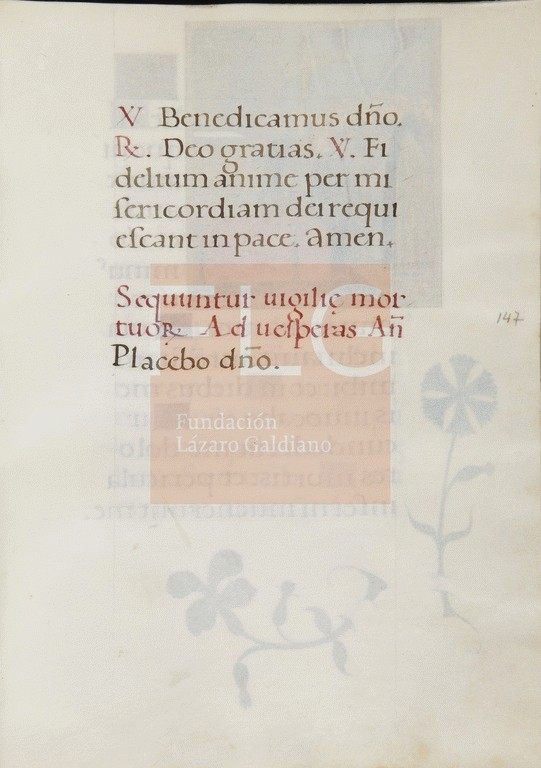 V Benedicamus dño.
R. Deo gratias. V. Fi
delium anime per mi
sericordiam dei requi
escant in pace. Amen.
Sequuntur uigilię mor
tuoꝝ. Ad uesperas Añ
Placebo dño.
147
FLG
Fundación
Lázaro Galdiano